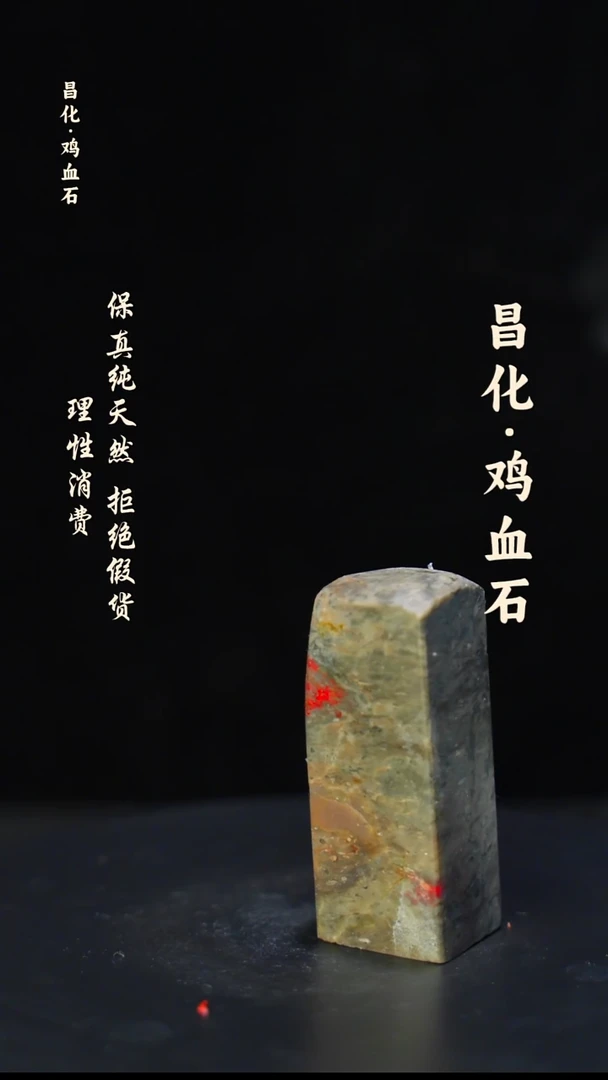 昌化·鸡血石
昌化·鸡血石
保真纯天然 拒绝假货
理性消费